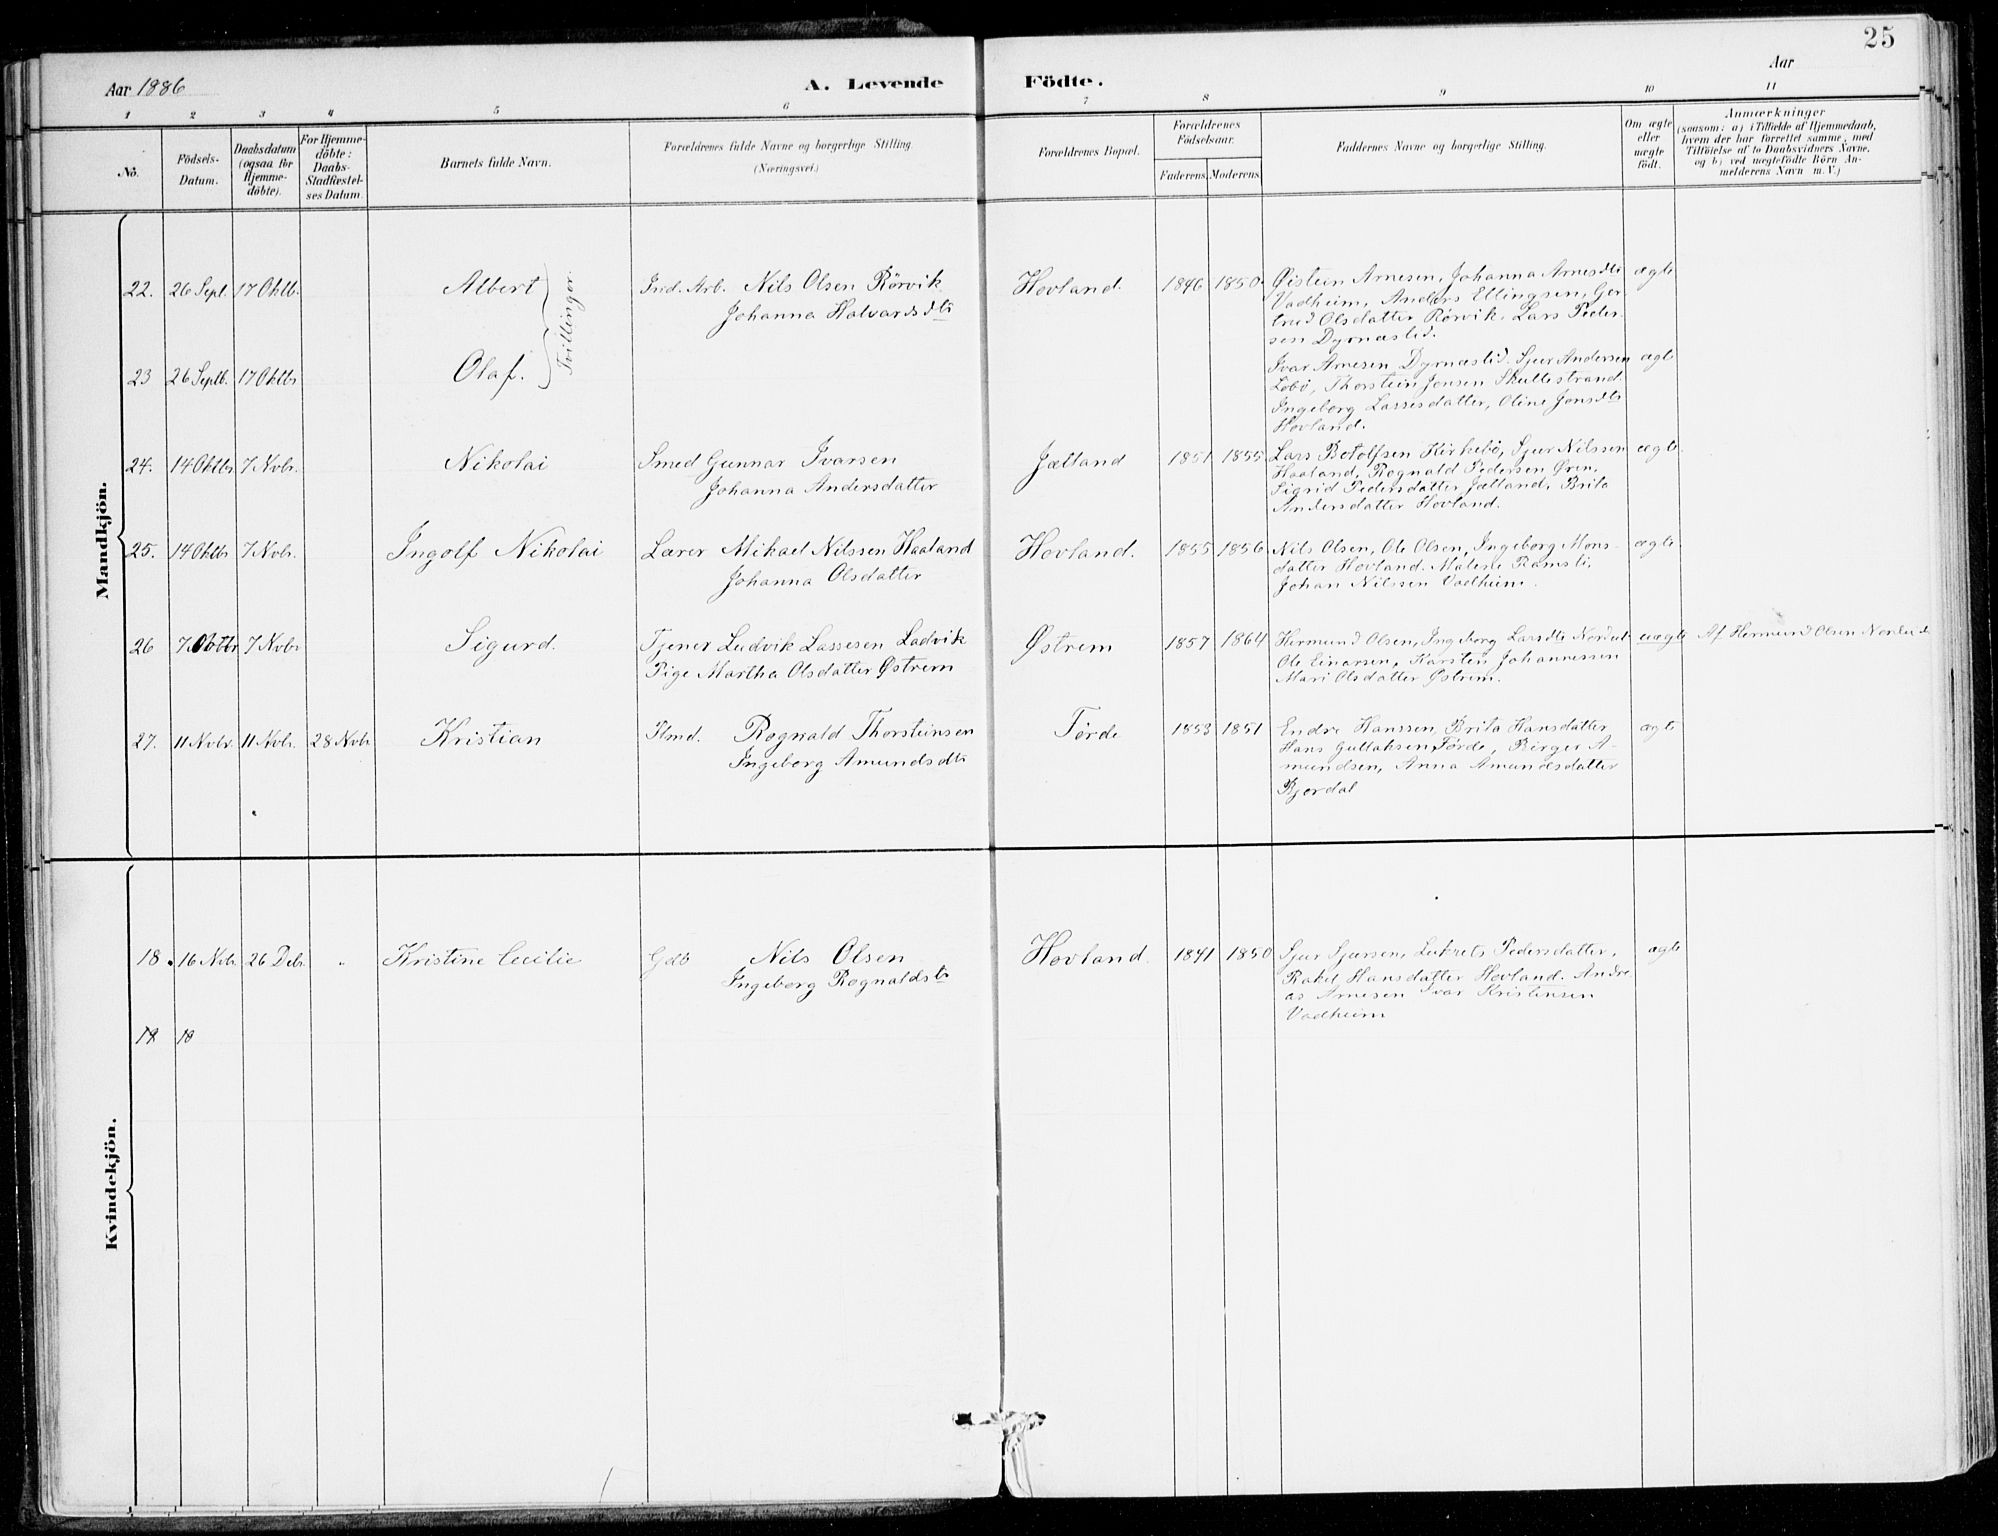 25
Aar 1886
A. Levende Födte.
Aar
1 2 3 4 5 6 7 8 9 10 11
No.
Födsels-
Datum.
Daabsdatum
(ogsaa for
Hjemme-
döbte).
For Hjemme-
döbte:
Daabs-
Stadfæstel-
ses Datum.
Barnets fulde Navn.
Forældrenes fulde Navne og borgerlige Stilling.
(Næringsvei.)
Forældrenes Bopæl.
Forældrenes
Födselsaar.
Faderens. Moderens.
Faddernes Navne og borgerlige Stilling.
Om ægte
eller
uægte
födt.
Anmærkninger
(saasom: a) i Tilfælde af Hjemmedaab,
hvem der har forrettet samme, med
Tilföielse af to Daabsvidners Navne,
og b) ved uægtefödte Börn An-
melderens Navn m. V.)
Mandkjön.
22. 26 Sept. 17 Oktb. Albert
Tvillinger.
Ind. Arb. Nils Olsen Rörvik
Johanna Halvardsdtr
Hovland. 1846 1850.
Øistein Arnesen, Johanna Arnesdtr
Vadheim, Anders Ellingsen, Ger-
trud Olsdatter Rørvik, Lars Peder-
sen Dyrnæslid.
ægte
23 26 Septb. 17 Oktbr Olaf.
Ivar Arnesen Dyrnæslid. Sjur Andersen
Lobö, Thorstein Jensen Skuttestrand.
Ingeborg Lassesdatter, Oline Jonsdtr
Hovland.
ægte
24. 14 Oktbr 7 Nvbr. Nikolai
Smed Gunnar Ivarsen
Johanna Andersdatter
Jælland 1851 1855
Lars Botolfsen Kirkebö, Sjur Nilssen
Haaland, Rognald Pedersen Øren,
Sigrid Pedersdatter Jælland, Brita
Andersdatter Hovland.
ægte
25. 14 Oktbr 7 Nvbr. Ingolf Nikolai
Lærer Mikael Nilssen Haaland
Johanna Olsdatter
Hovland. 1855 1856
Nils Olsen, Ole Olsen, Ingeborg Mons-
datter Hovland. Malene Ramsli,
Johan Nilssen Vadheim.
ægte
26 7 Oktbr 7 Nvbr Sigurd.
Tjener Ludvik Lassesen Ladvik
Pige Martha Olsdatter Østrem
Østrem 1857 1864
Hermund Olsen, Ingeborg Larsdtr
Ole Einarsen, Karsten Johannessen
Mari Olsdatter Østrem.
uægte Af Hermund Olsen
27. 11 Nvbr. 11 Nvbr. 28 Nvbr Kristian
Rognald Thorsteinsen
Ingeborg Amundsdtr
Førde 1853 1851
Endre Hanssen, Brita Hansdatter
Hans Guttaksen Førde, Birger A-
mundsen, Anna Amundsdatter
Bjordal
ægte
Kvindekjön.
18. 16 Nvbr 26 Debr. " Kristine Cecilie
Gdb Nils Olsen
Ingeborg Rognaldsdtr
Hovland. 1841 1850
Sjur Sjursen, Lukrets Pedersdatter,
Rakel Hansdatter Hovland. Andre-
as Arnesen Ivar Kristensen
Vadheim
ægte
19 18